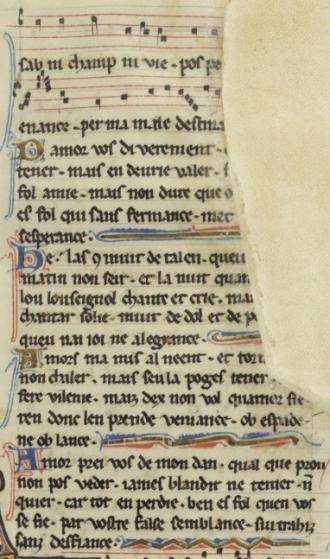 sab ni champ ni vie · pos pe
enance · per ma male destina
D amor vos di verement ·
tener · mais en deurie valer · s
fol amie · mais non dure que o
es fol qui sans fermance · met
sesperance ·
He · las 9 muir de talen · queu
matin non seit · et la nuit quan
lou lonseignol chante et crie · mai
chantar folie · muir de dol et de p
queu nai ioi ne alegrance ·
Amors ma mis al neent · et torn
non chaler · mais seu la poges tener ·
fere vilenie · maiz dex non vol quamor fie
ren donc len prende veniance · ob espade
ne ob lance ·
Amor prei vos de mon dan · qual que prou
non pos veder · iames blandir ne temer · n̄
quier · car tot en perdie · ben es fol quen vos
se fie · par vostre false semblance · sui trahiz
sanz desfiance ·